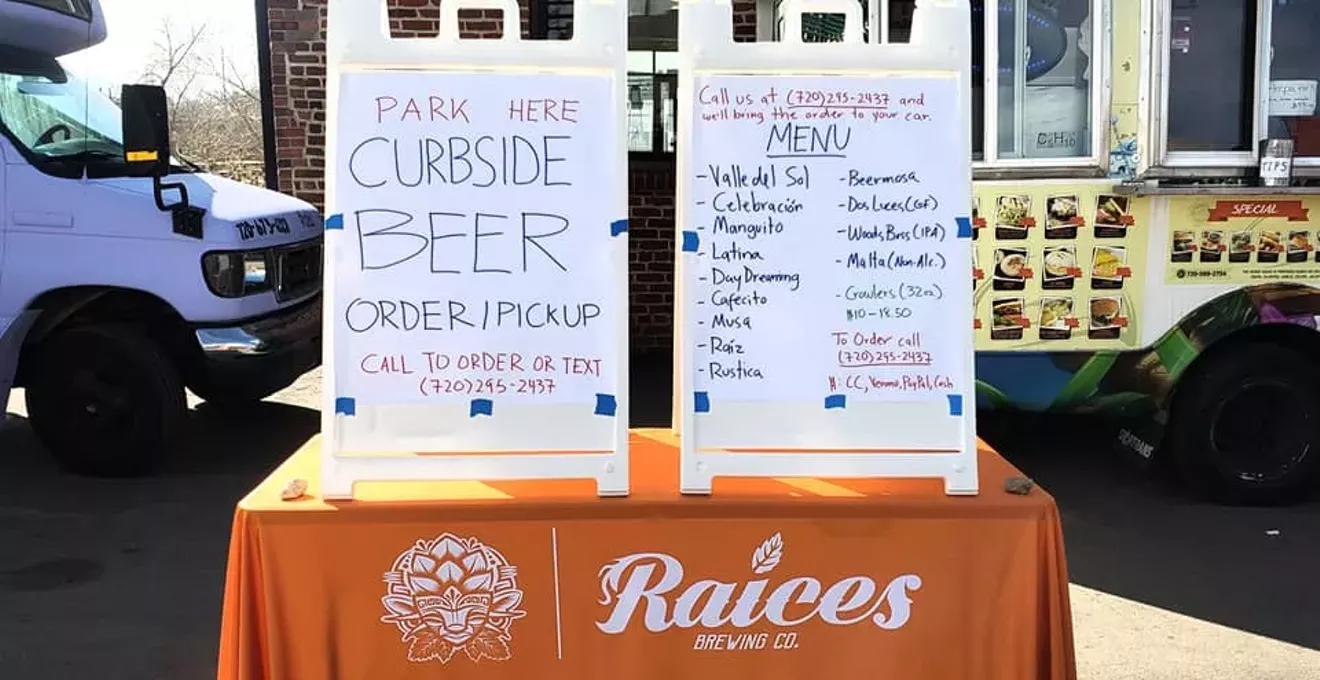 PARK HERE
CURBSIDE
BEER
ORDER/PICKUP
CALL TO ORDER OR TEXT
(720)295-2437
Call us at (720)295-2437 and
we'll bring the order to your car.
MENU
- Valle del Sol
- Celebración
- Manguito
- Latina
- Day Dreaming
- Cafecito
- Musa
- Raíz
- Rustica
- Beermosa
- Dos Luces (GF)
- Woods Boss (IPA)
- Malta (Non-Alc.)
- Growlers (32oz)
$10-18.50
To Order call
(720)295-2437
$: CC, Venmo, PayPal, Cash
TIPS
SPECIAL
Raíces
BREWING CO.